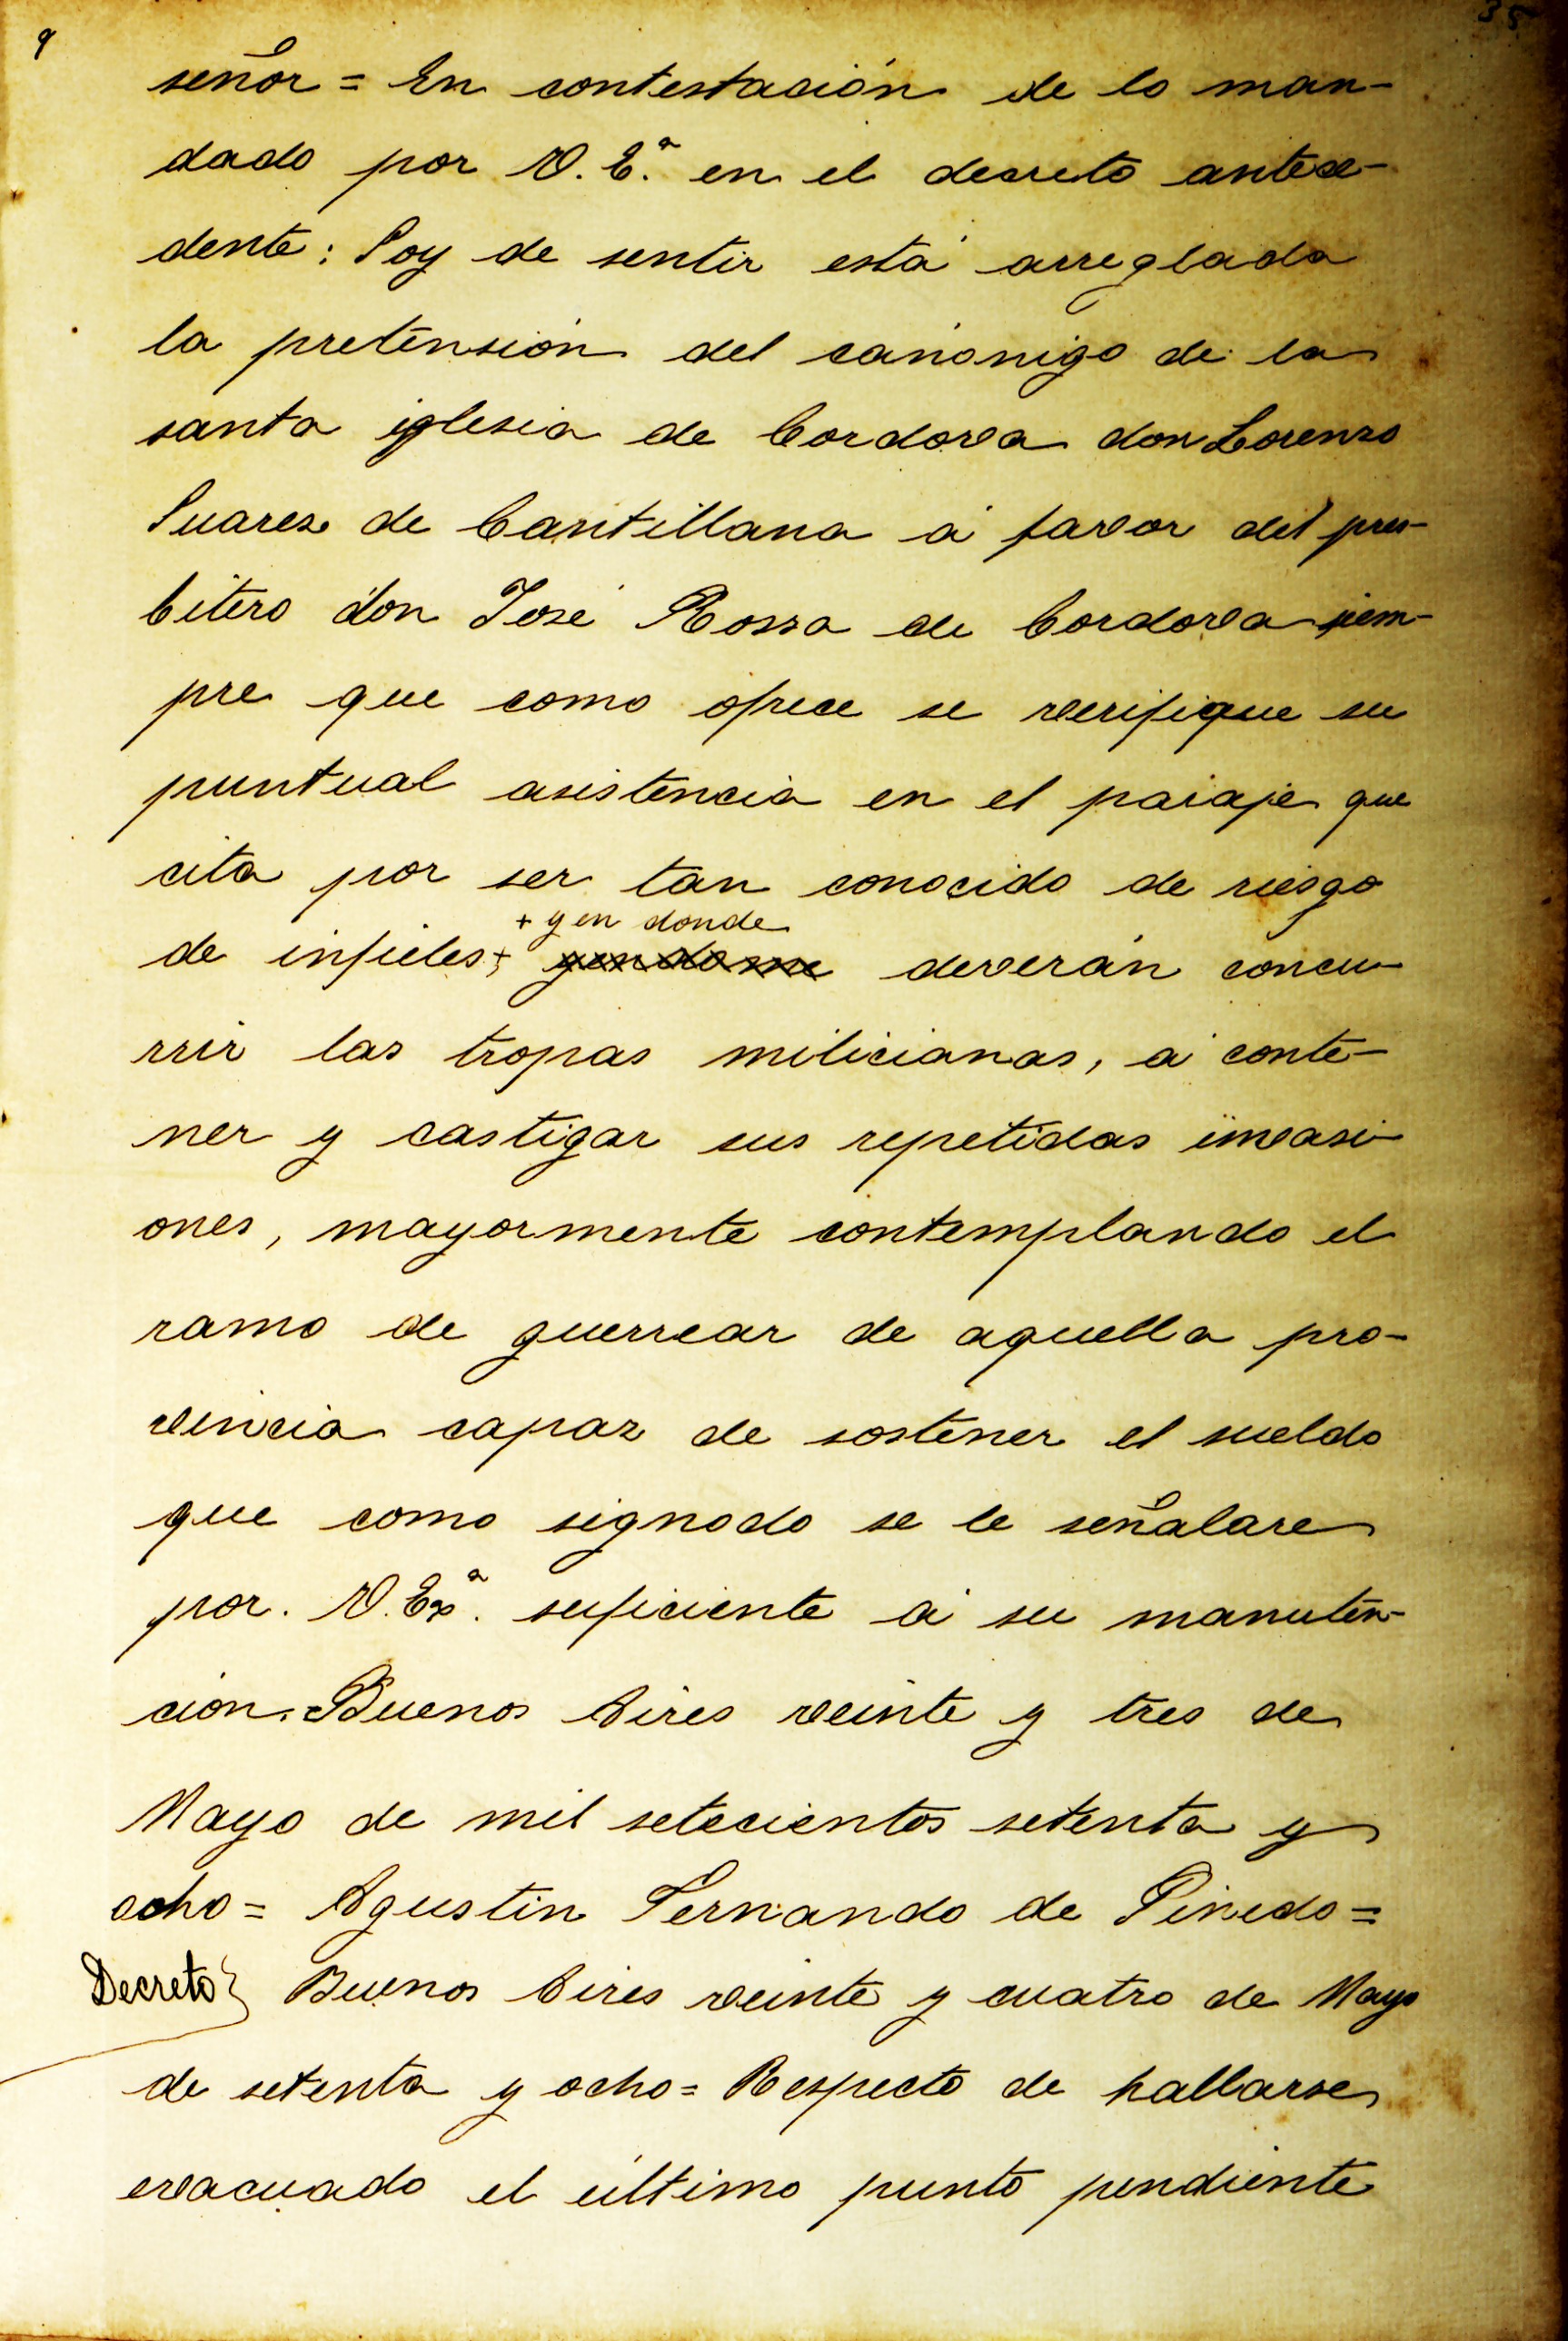 9
35
señor = En contestación de lo man-
dado por V. E.ª en el decreto antece-
dente: Soy de sentir está arreglada
la pretensión del canónigo de la
santa iglesia de Cordova don Lorenzo
Suarez de Cantillana á favor del pres-
bitero don José Rossa de Cordova siem-
pre que como ofrece se verifique su
puntual asistencia en el paraje que
cita por ser tan conocido de riesgo
+ y en donde
de infieles + deverán concu-
rrir las tropas milicianas, á conte-
ner y castigar sus repetidas invasi-
ones, mayormente contemplando el
ramo de guerrear de aquella pro-
vincia capaz de sostener el sueldo
que como signodo se le señalare
por. V. Exª. suficiente á su manuten-
cion. = Buenos Aires veinte y tres de
Mayo de mil setecientos setenta y
ocho = Agustin Fernando de Pinedo =
Decreto} Buenos Aires veinte y cuatro de Mayo
de setenta y ocho = Respecto de hallarse
evacuado el último punto pendiente